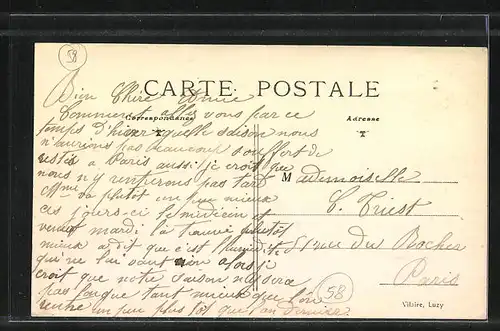 58
CARTE POSTALE
Correspondance
Adresse
Bien Chère Amie
Comment allez vous par ce
temps d'hiver quelle saison nous
n'aurions pas beaucoup souffert de
restés a Paris aussi je crois que
nous n'y rentrerons pas tard
va plutôt un peu mieux
ces jours-ci le médecin est
venu mardi la trouvé plutôt
mieux a dit que c'est l'humidité
qui ne lui vaut rien alors je
croit que notre saison ne sera
pas longue tant mieux que l'on
rentre un peu plus tôt que l'an dernier
Mademoiselle
C. Triest
51 rue du Rocher
Paris
58
Vilaire, Luzy